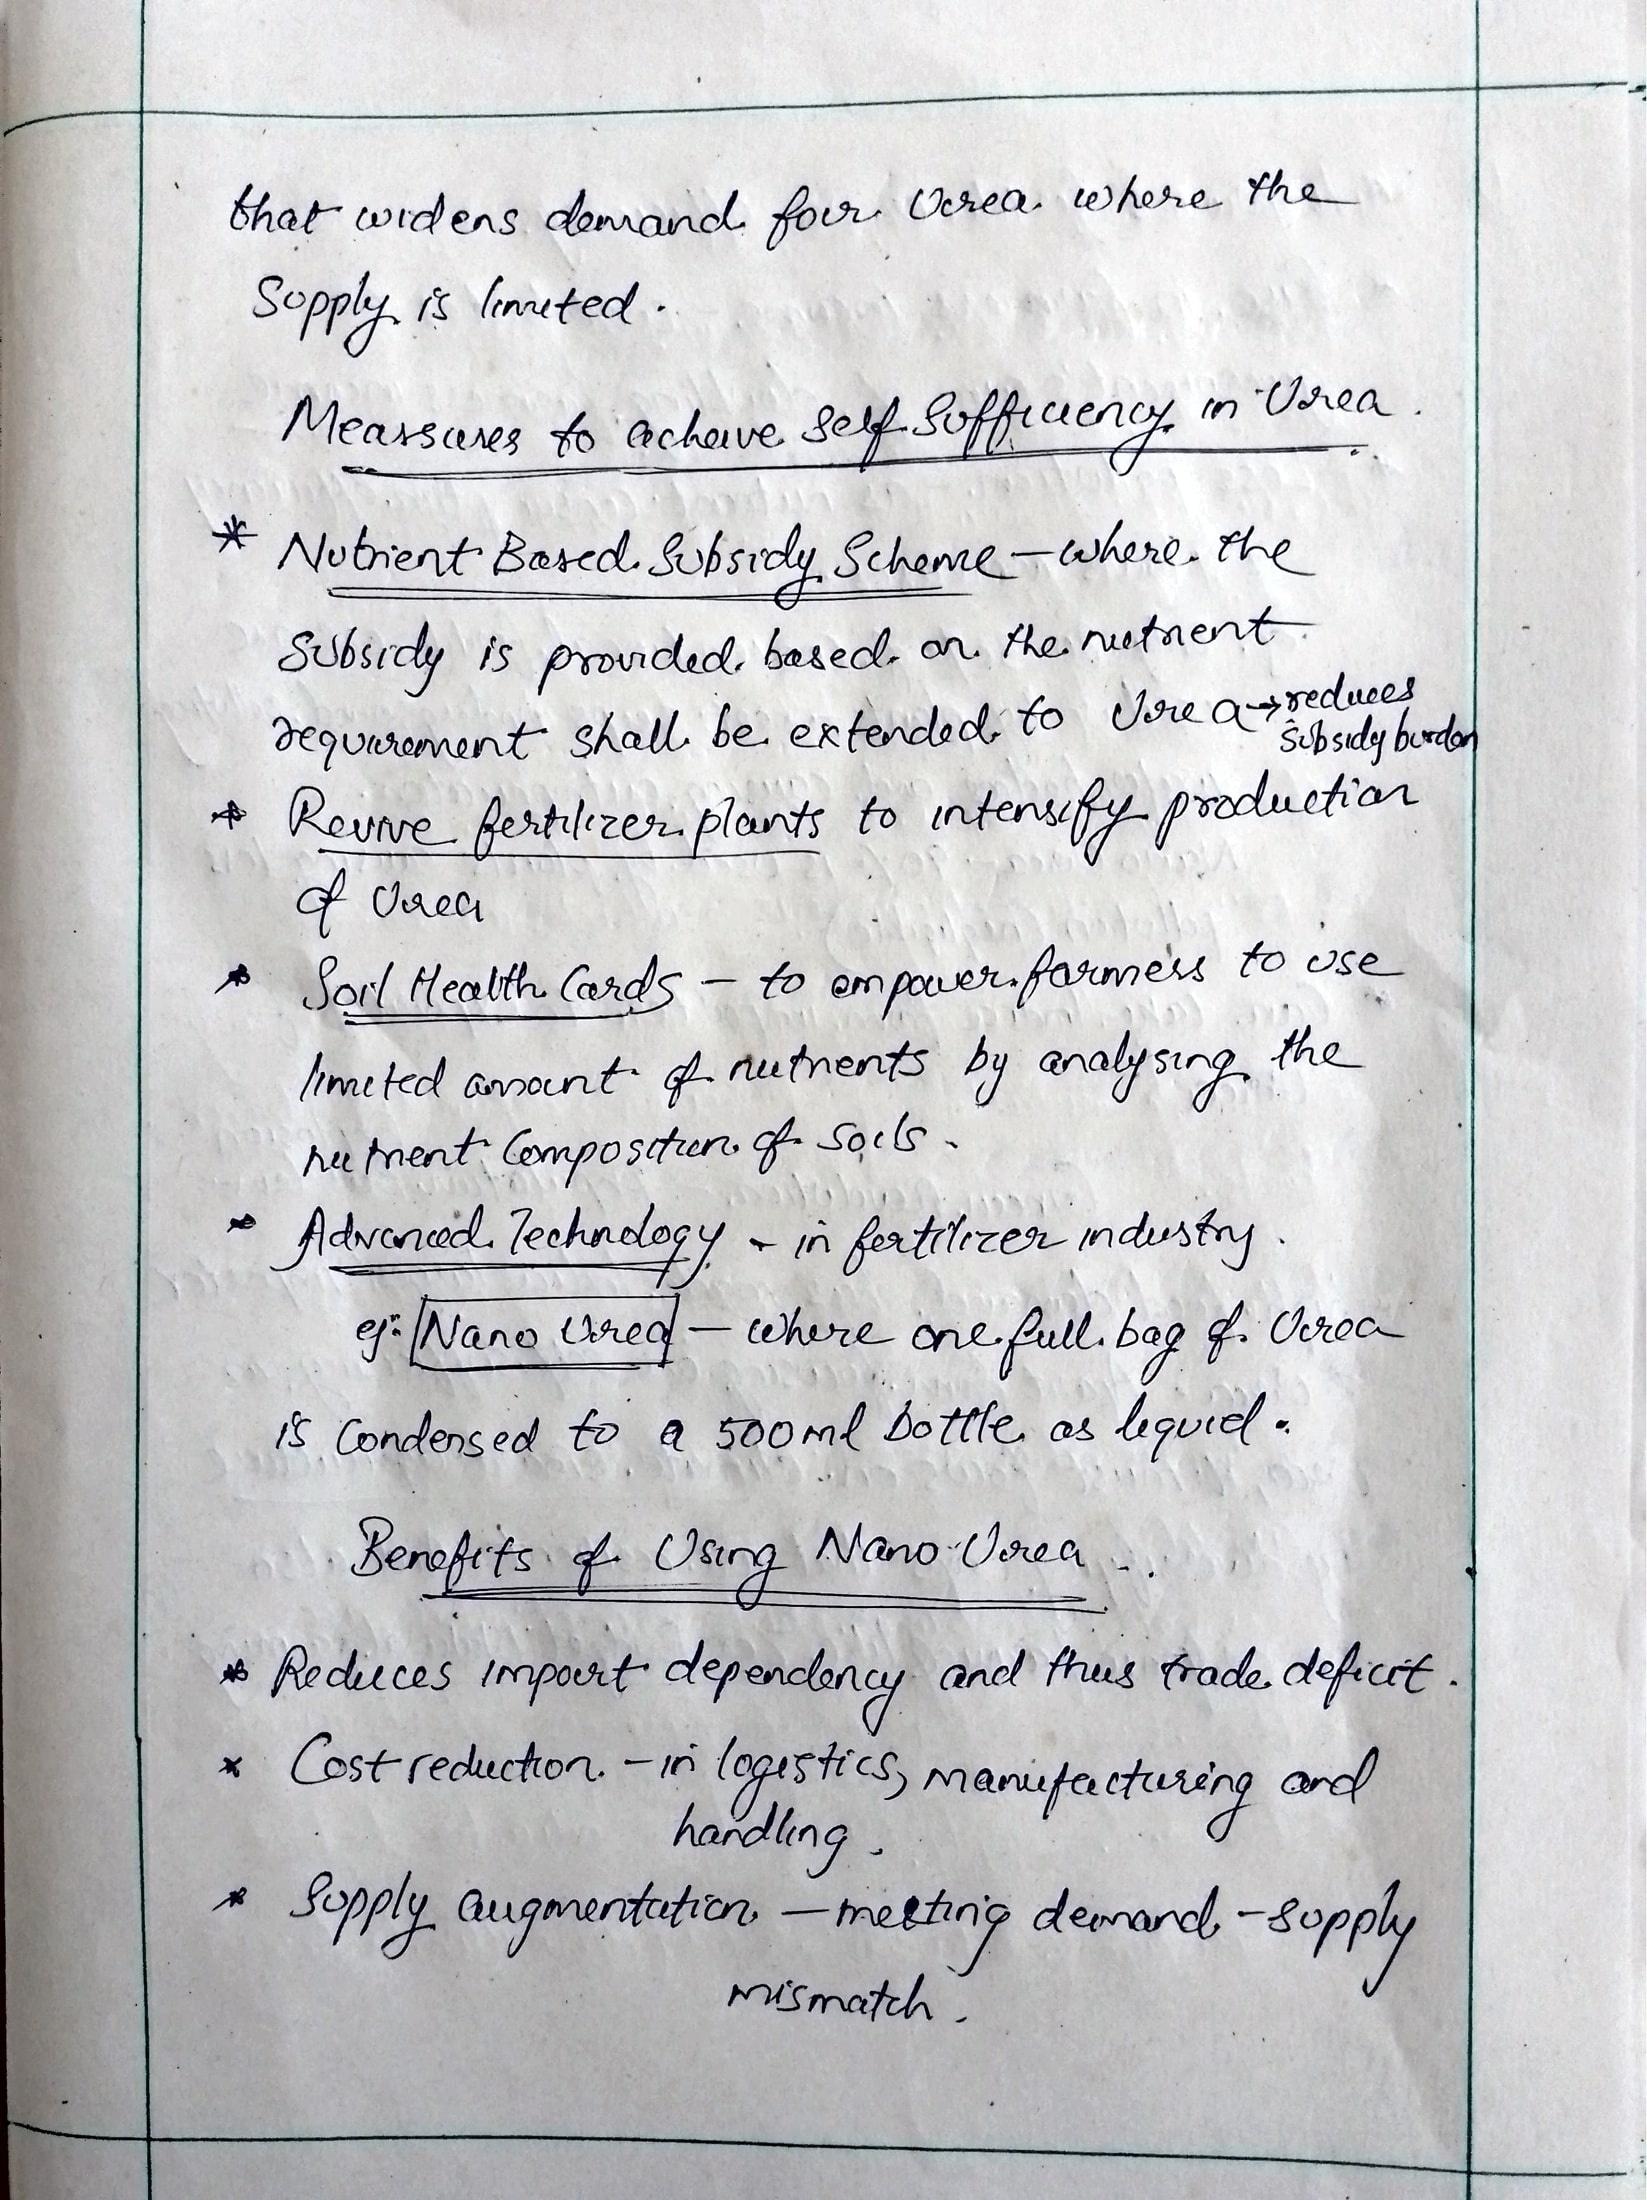 that widens demand for Urea where the
Supply is limited.
Meassures to acheive Self Sufficiency in Urea.
* Nutrient Based Subsidy Scheme - where the
Subsidy is provided based on the nutrient
requirement shall be extended to Urea → reduces
subsidy burden
* Revive fertilizer plants to intensify production
of Urea
* Soil Health Cards - to empower farmers to use
limited amount of nutrients by analysing the
nutrient Composition of Soils.
* Advanced Technology - in fertilizer industry.
eg: Nano Urea - where one full bag of Urea
is Condensed to a 500ml bottle as liquid.
Benefits of Using Nano Urea.
* Reduces import dependency and thus trade deficit.
* Cost reduction - in logistics, manufacturing and
handling.
* Supply augmentation - meeting demand - supply
mismatch.